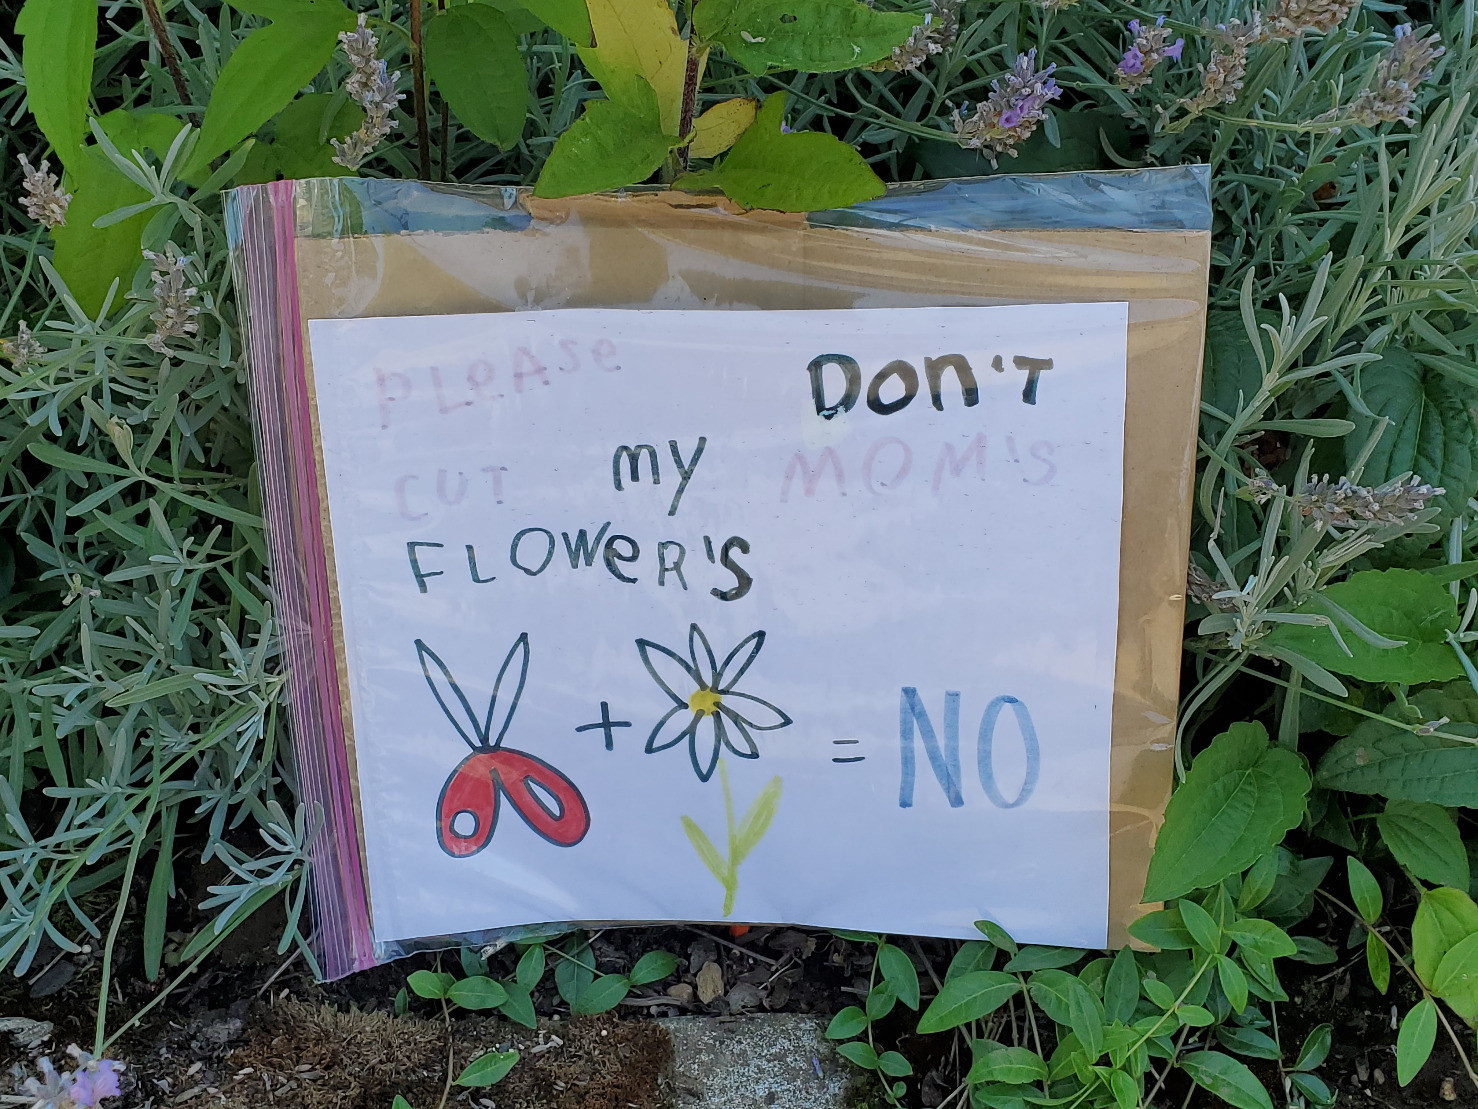 PLeASe DON'T
CUT my MOM'S
FLOWeR'S
+ = NO